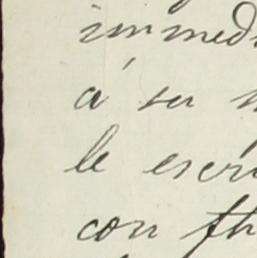 inmed
á su
le escri
con fh